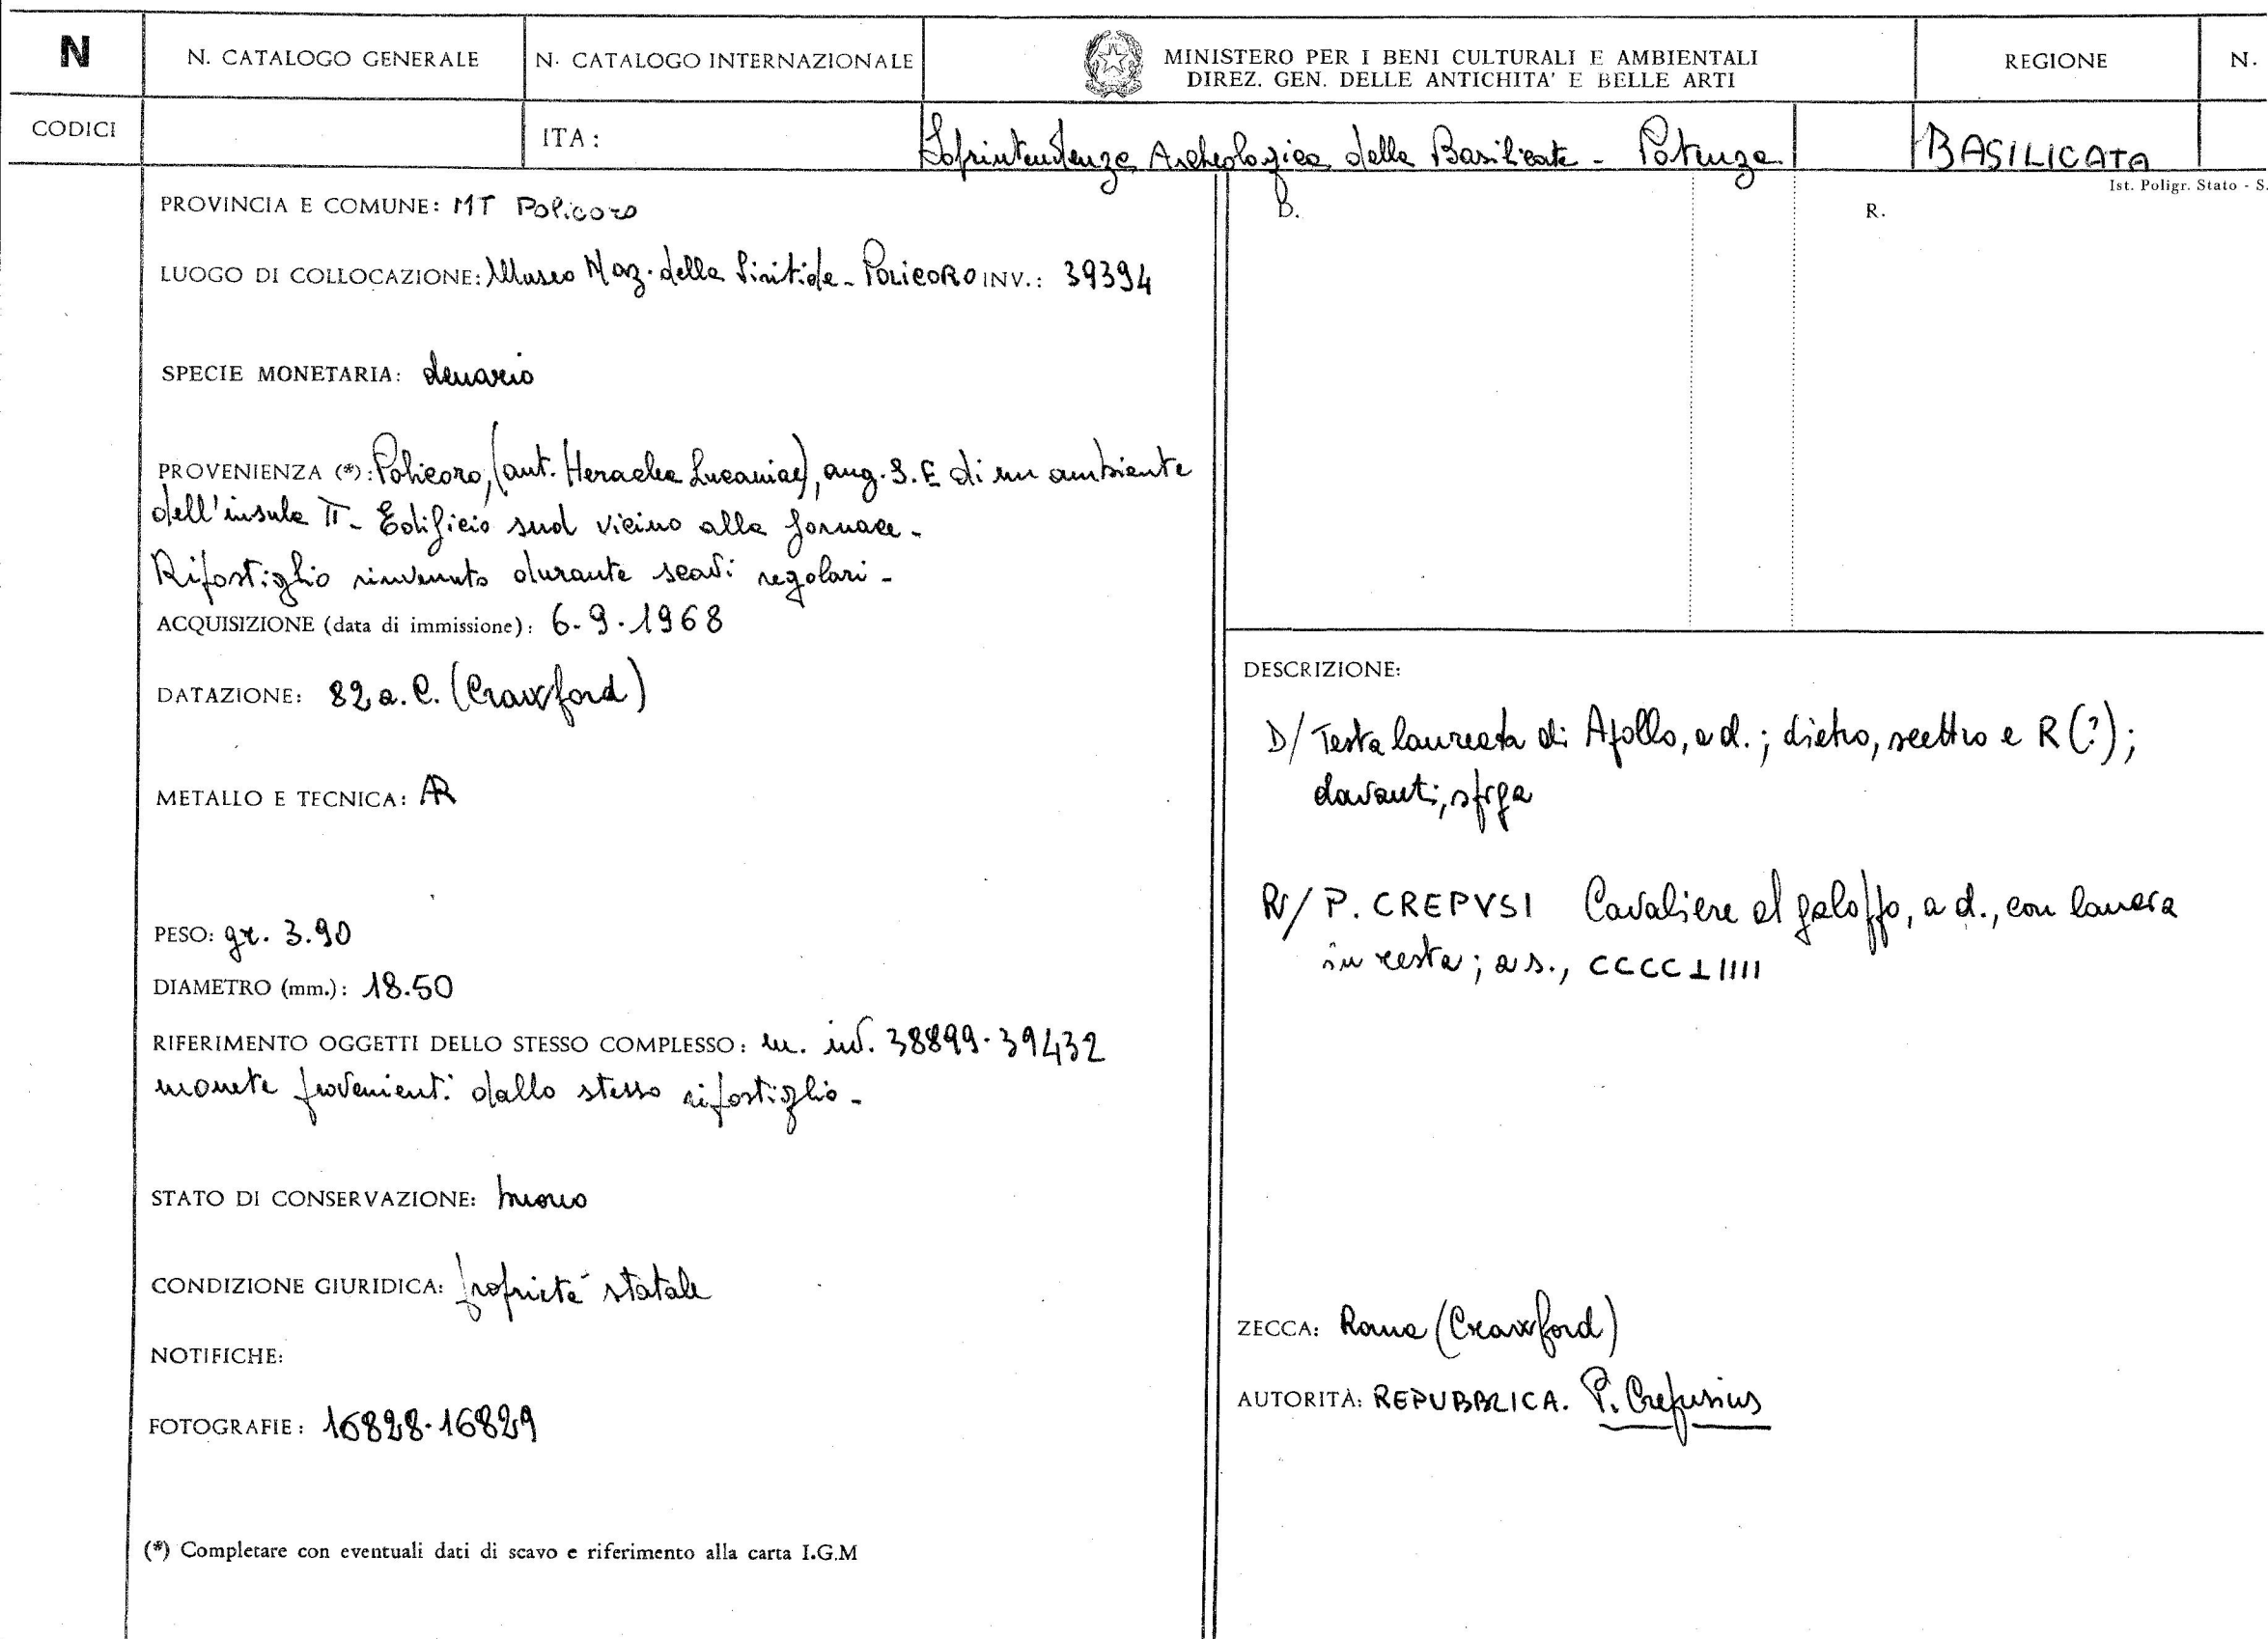 N
N. CATALOGO GENERALE
N. CATALOGO INTERNAZIONALE
MINISTERO PER I BENI CULTURALI E AMBIENTALI
DIREZ. GEN. DELLE ANTICHITA' E BELLE ARTI
REGIONE
N.
CODICI
ITA:
Soprintendenza Archeologica della Basilicata - Potenza
BASILICATA
Ist. Poligr. Stato - S.
PROVINCIA E COMUNE: MT Policoro
LUOGO DI COLLOCAZIONE: Museo Naz. della Siritide - POLICORO INV.: 39394
SPECIE MONETARIA: denario
PROVENIENZA (*): Policoro, (ant. Heraclea Lucaniae), ang. S.E di un ambiente
dell'insula II - Edificio sud vicino alla fornace -
Ripostiglio rinvenuto durante scavi regolari -
ACQUISIZIONE (data di immissione): 6-9-1968
DATAZIONE: 82 a.C. (Crawford)
METALLO E TECNICA: AR
PESO: gr. 3.90
DIAMETRO (mm.): 18.50
RIFERIMENTO OGGETTI DELLO STESSO COMPLESSO: n. inv. 38899-39432
monete provenienti dallo stesso ripostiglio -
STATO DI CONSERVAZIONE: buono
CONDIZIONE GIURIDICA: proprietà statale
NOTIFICHE:
FOTOGRAFIE: 16828-16829
(*) Completare con eventuali dati di scavo e riferimento alla carta I.G.M
B.
R.
DESCRIZIONE:
D/ Testa laureata di Apollo, a d.; dietro, scettro e R (?);
davanti, spiga
R/ P. CREPVSI Cavaliere al galoppo, a d., con lancia
in resta; a s., CCCC⊥IIII
ZECCA: Roma (Crawford)
AUTORITÀ: REPUBBLICA. P. Crepusius